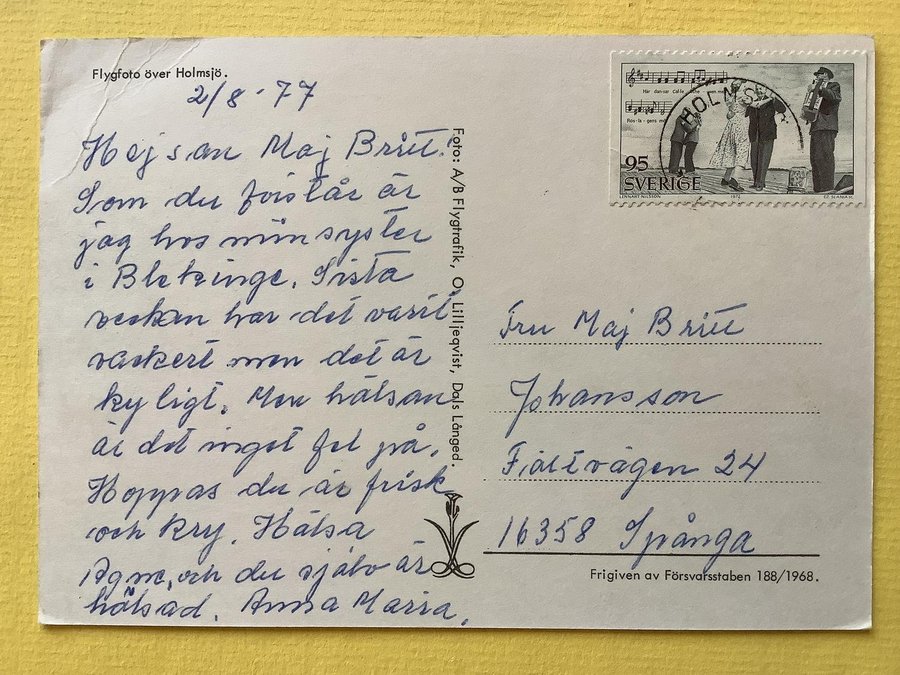 Flygfoto över Holmsjö.
2/8 - 77
Hejsan Maj Britt!
Som du förstår är
jag hos min syster
i Blekinge. Sista
veckan har det varit
vackert men det är
kyligt. Men hälsan
är det inget fel på.
Hoppas du är frisk
och kry. Hälsa
Agne, och du själv är
hälsad. Anna Maria.
Foto: A/B Flygtrafik, O. Lilljeqvist, Dals Långed.
Här dansar Calle
Ros-la-gens
HOLMSJÖ
95
SVERIGE
LENNART NILSSON
CZ. SLANIA SC.
Fru Maj Britt
Johansson
Fjällvägen 24
16358 Spånga
Frigiven av Försvarsstaben 188/1968.